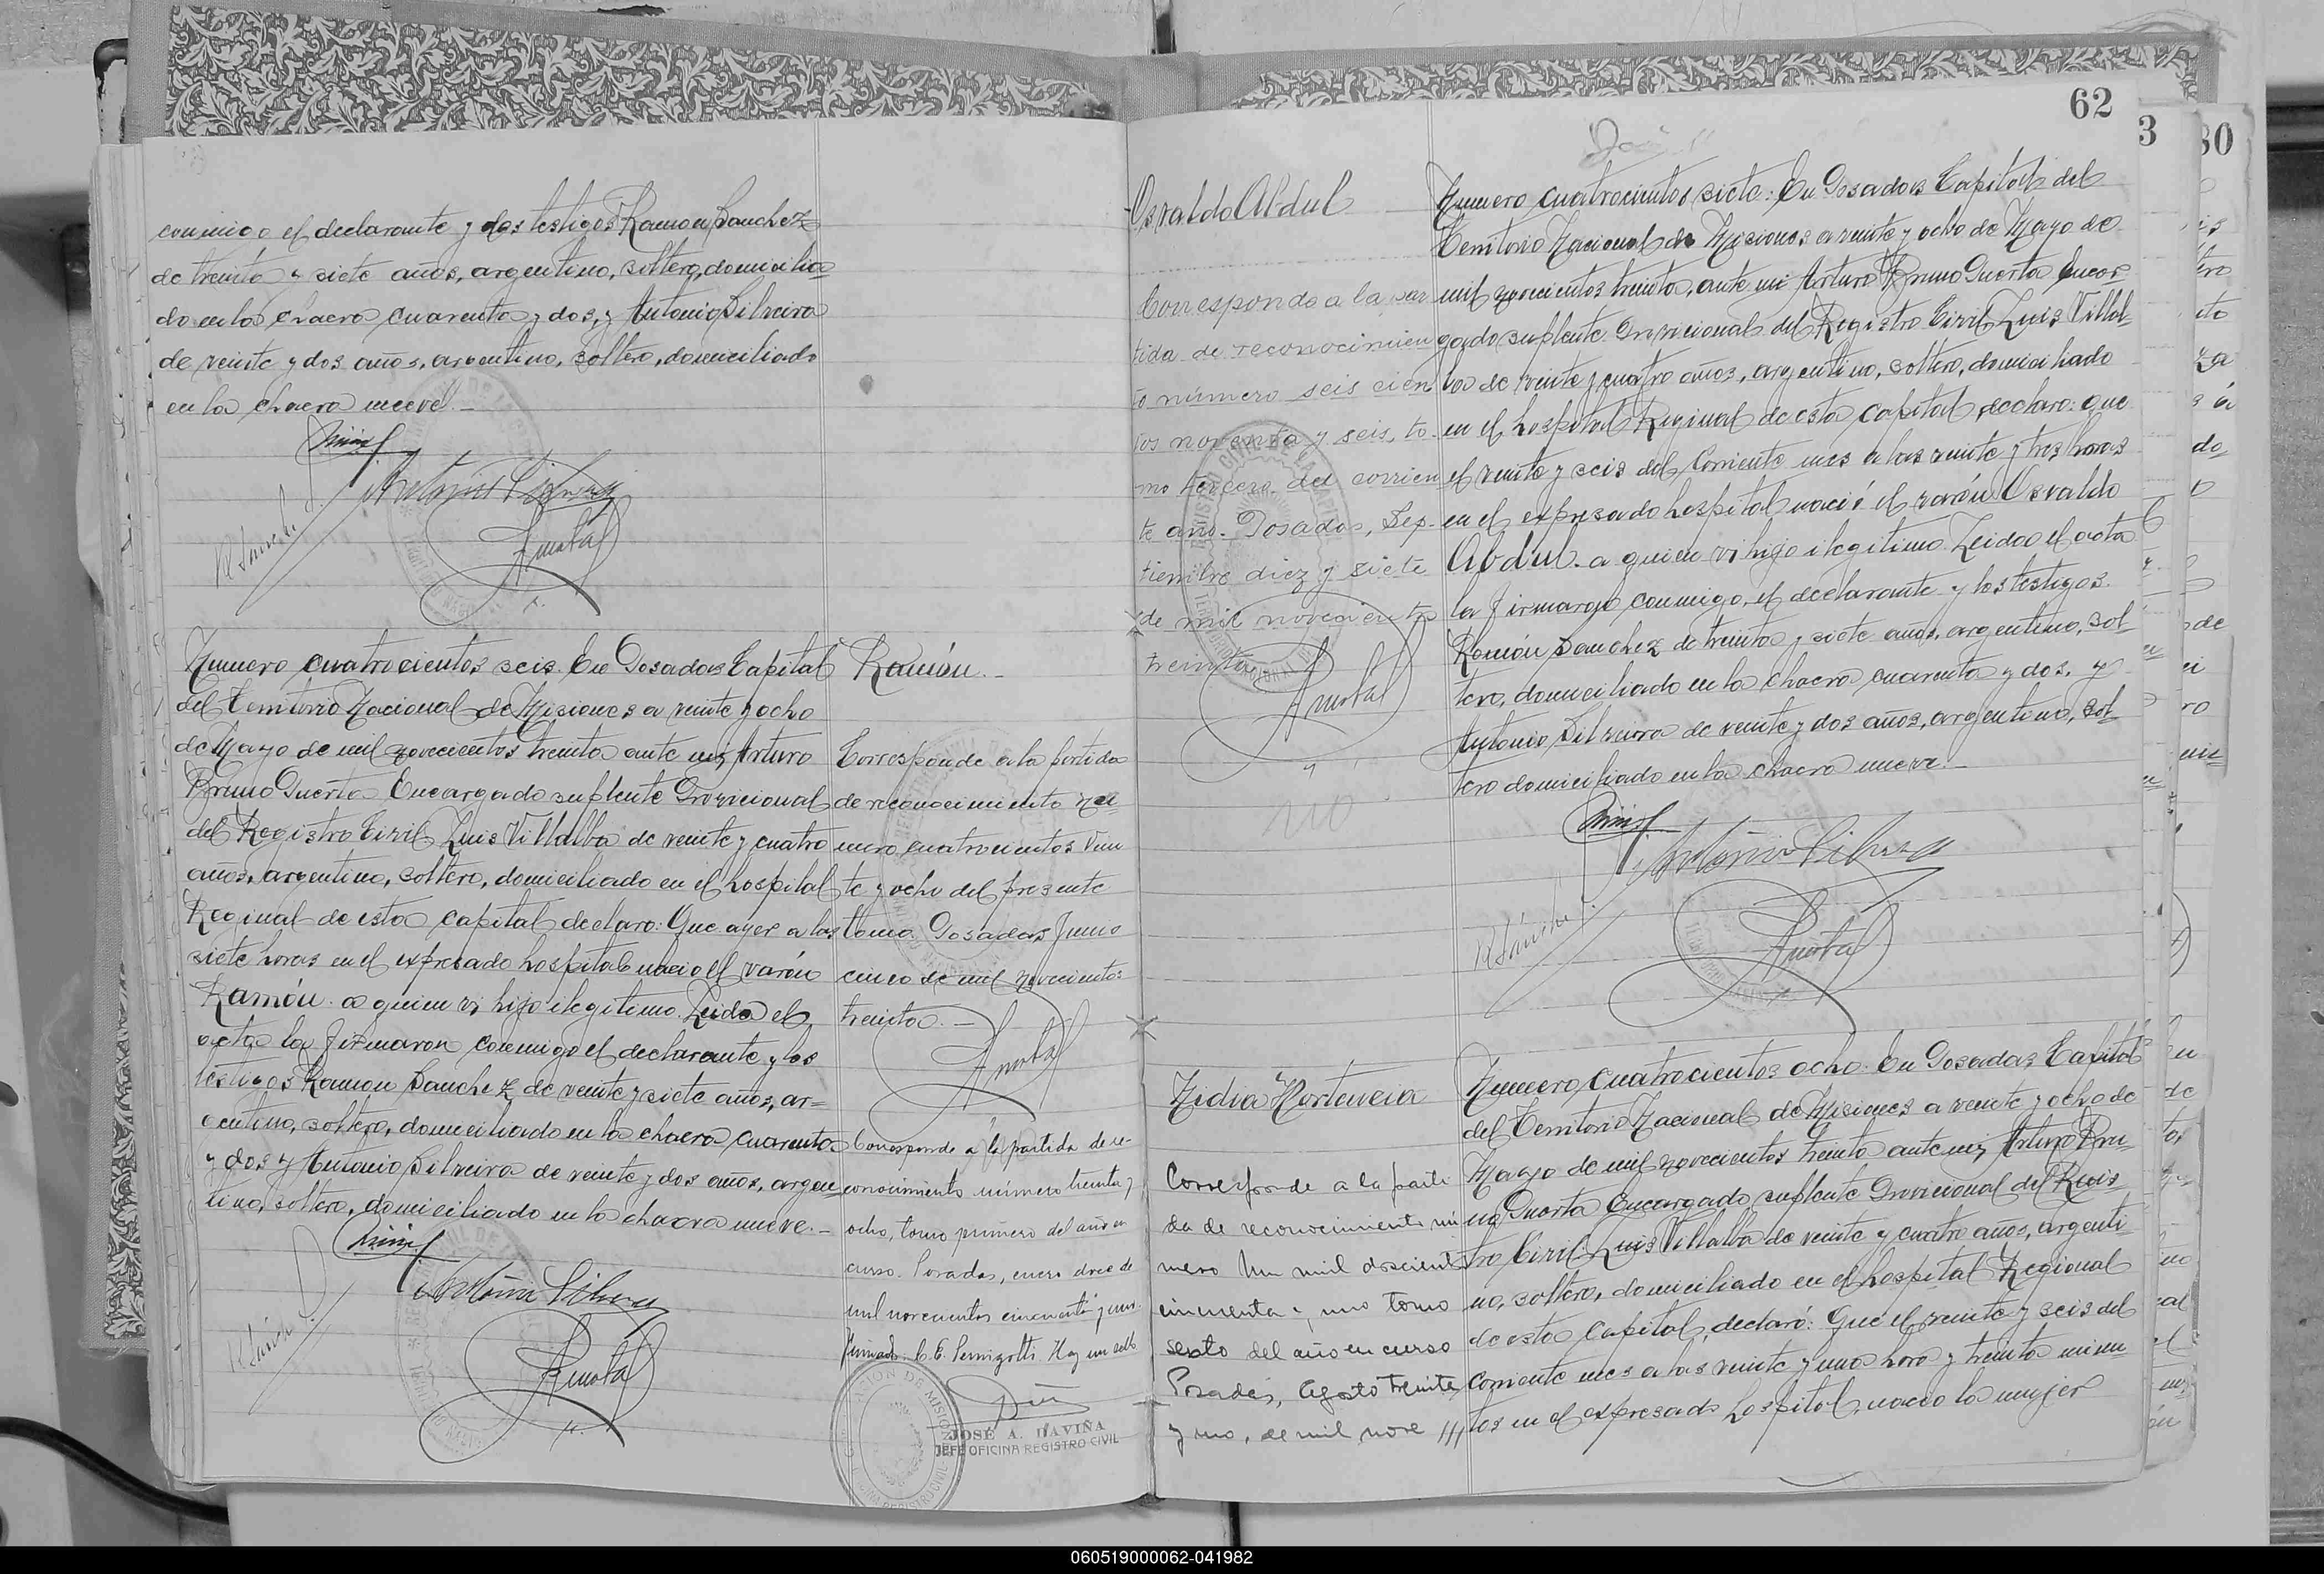 conmigo el declarante y dos testigos Ramon Sanchez
de treinta y siete años, argentino, soltero, domicilia
do en la chacra cuarenta y dos, y Antonio Silveira
de veinte y dos años, argentino, soltero, domiciliado
en la chacra nueve.—
Antonio Silveira
R Sánchez
Numero cuatrocientos seis. En Posadas Capital
del Territorio Nacional de Misiones a veinte y ocho
de Mayo de mil novecientos treinta ante mi, Arturo
Bruno Puerta Encargado suplente Provicional
del Registro Civil, Luis Villalba de veinte y cuatro
años, argentino, soltero, domiciliado en el hospital
Reginal de esta capital declaro: Que ayer a las
siete horas en el expresado hospital nacio el varón
Ramón. a quien vi, hijo ilegitimo. Leida el
acta la firmaron conmigo el declarante y los
testigos Ramon Sanchez de veinte y siete años, ar=
gentino, soltero, domiciliado en la chacra cuarenta
y dos y Antonio Silveira de veinte y dos años, argen
tino, soltero, domiciliado en la chacra nueve.—
Antonio Silveira
R Sánchez
Ramón.—
Corresponde a la partida
de reconocimiento nu
mero cuatrocientos vein
te y ocho del presente
tomo. Posadas, Junio
cinco de mil novecientos
treinta.—
Corresponde a la partida de re-
conocimiento número treinta y
ocho, tomo primero del año en
curso. Posadas, enero doce de
mil novecientos cincuenta y uno.
Firmado: C. E. Pernigotti. Hay un sello
JOSÉ A. DAVIÑA
JEFE OFICINA REGISTRO CIVIL
62
3
80
Osvaldo Abdul
Corresponde a la par
tida de reconocimien
to número seis cien
tos noventa y seis, to-
mo tercero del corrien
te año. Posadas, Sep-
tiembre diez y siete
de mil novecientos
treinta
Numero cuatrocientos siete: En Posadas Capital del
Territorio Nacional de Misiones a veinte y ocho de Mayo de
mil novecientos treinta, ante mi Arturo Bruno Puerta Encar
gado suplente Provicional del Registro Civil, Luis Villal-
ba de veinte y cuatro años, argentino, soltero, domiciliado
en el hospital Reginal de esta capital declaro: que
el veinte y seis del corriente mes a las veinte y tres horas
en el expresado hospital nació el varón Osvaldo
Abdul. a quien vi hijo ilegitimo. Leida el acta
la firmaron conmigo, el declarante y los testigos.
Ramón Sanchez de treinta y siete años, argentino, sol-
tero, domiciliado en la chacra cuarenta y dos, y
Antonio Silveira de veinte y dos años, argentino, sol-
tero domiciliado en la chacra nueve.—
Antonio Silveira
R Sánchez
Nidia Hortencia
Corresponde a la parti
da de reconocimiento nú
mero Un mil doscient
cincuenta y uno tomo
sexto del año en curso
Posadas, Agosto treinta
y uno, de mil nove ///
Numero cuatrocientos ocho. En Posadas, Capital
del Territorio Nacional de Misiones a veinte y ocho de
Mayo de mil novecientos treinta ante mi, Arturo Bru-
no Puerta Encargado suplente Provicional del Reis
tro Civil: Luis Villalba de veinte y cuatro años, argenti
no, soltero, domiciliado en el hospital Regional
de esta capital, declaró: Que el veinte y seis del
corriente mes a las veinte y una hora y treinta minu
tos en el expresado hospital, nacio la mujer
060519000062-041982